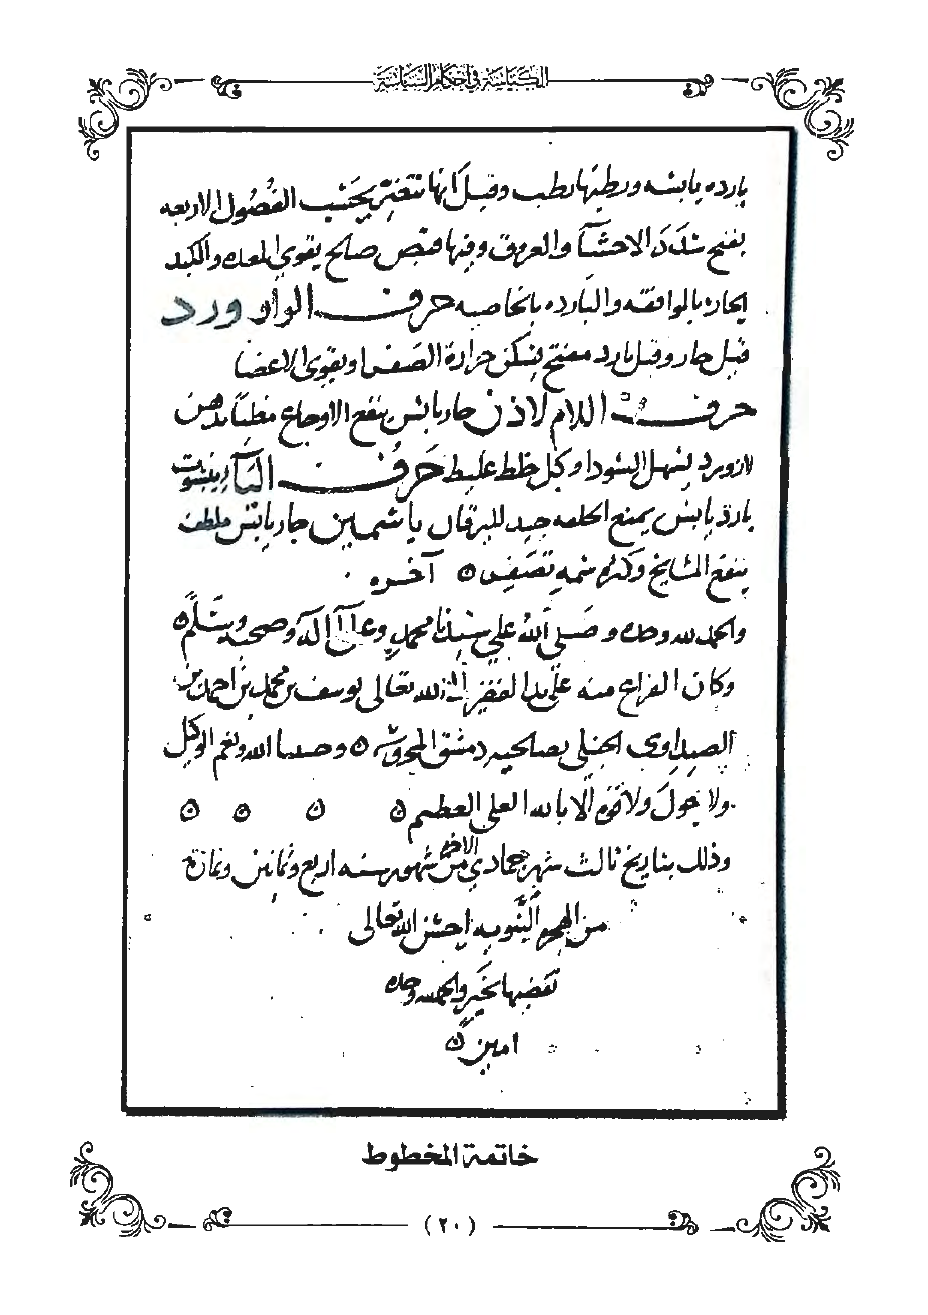 الكياسة في أحكام السياسة
بارده يابسه ورطبها رطب وقيل انها تتغير بحسب الفصول الاربعه
يفتح سدد الاحشآ والعروق وفيها قبض صالح يقوي المعده والكبد
الحاره بالموافقه والبارده بالخاصيه حرف الواو ورد
قيل حار وقيل بارد مفتح يسكن حرارة الصفرا ويقوي الاعضا
حرف اللام لاذن حار يابس ينفع الاوجاع مطبا بدهن
لازورد يسهل السودا وكل خلط غليظ حرف اليآ
بارد يابس يمنع الحلفه جيد لليرقان ياسمين حار يابس ملطف
ينفع المشايخ وكثرة شمه تصفر ٥ آخره
والحمد لله وحده وصلى الله على سيدنا محمد وعلى آله وصحبه وسلم ٥
وكان الفراغ منه على يد الفقير الى الله تعالى يوسف بن محمد بن احمد بن
الصيداوى الحنبلي بصالحيه دمشق المحروسه ٥ وحسبنا الله ونعم الوكيل
ولا حول ولا قوة الا بالله العلي العظيم ٥ ٥ ٥ ٥
وذلك بتاريخ ثالث شهر جمادي الاخر من شهور سنه اربع وثمانين وثمانمائة
من الهجرة النبويه احسن الله تعالى
تقضيها بخير والحمد لله وحده
امين ٥
خاتمة المخطوط
(٢٠)